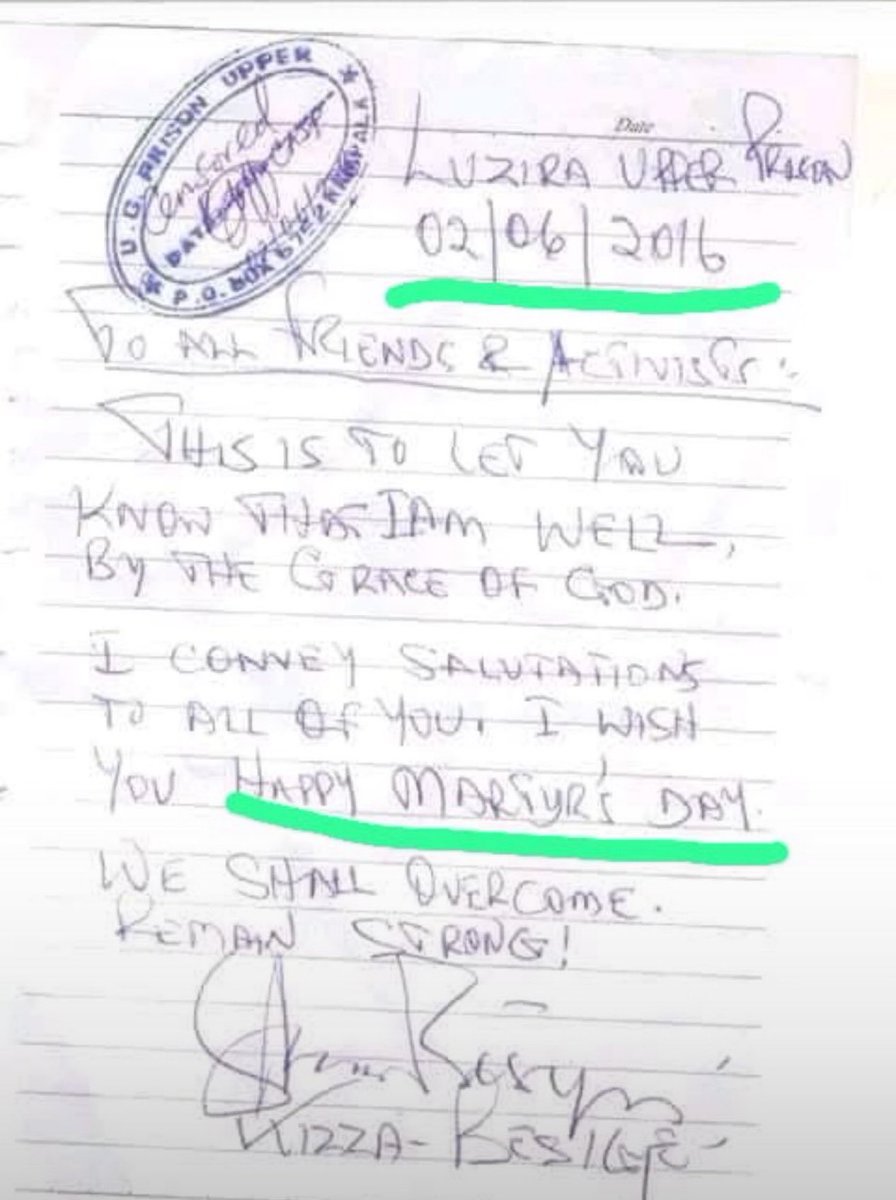 U.G. PRISON UPPER
Censored
DATE
P.O. BOX
KAMPALA
Date
LUZIRA UPPER PRISON
02/06/2016
TO ALL FRIENDS & ACTIVISTS:
THIS IS TO LET YOU
KNOW THAT I AM WELL,
BY THE GRACE OF GOD.
I CONVEY SALUTATIONS
TO ALL OF YOU. I WISH
YOU HAPPY MARTYR'S DAY.
WE SHALL OVERCOME.
REMAIN STRONG!
KIZZA-BESIGYE